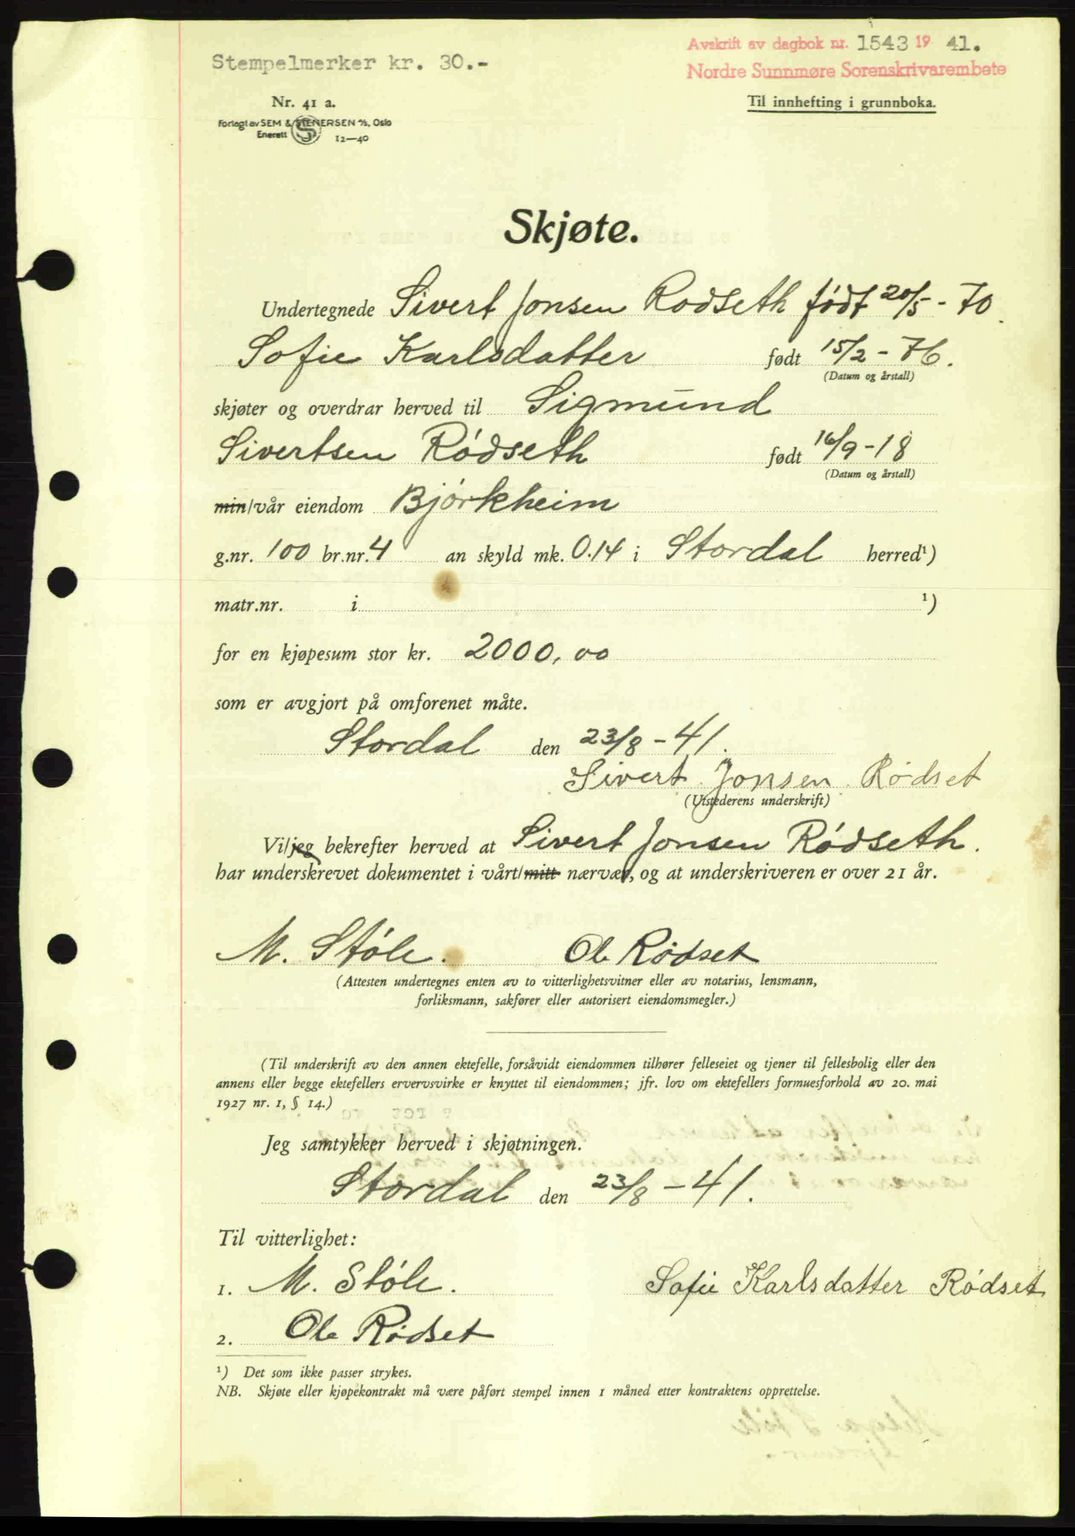 Stempelmerker kr. 30.-
Avskrift av dagbok nr. 1543 19 41.
Nordre Sunnmøre Sorenskrivarembete
Nr. 41 a.
Forlagt av SEM & STENERSEN A/S, Oslo
Enerett 12—40
Til innhefting i grunnboka.
Skjøte.
Undertegnede Sivert Jonsen Rødseth født 20/5 - 70.
Sofie Karlsdatter født 15/2 - 76.
(Datum og årstall)
skjøter og overdrar herved til Sigmund
Sivertsen Rødseth født 16/9 - 18
(Datum og årstall)
min/vår eiendom Bjørkheim
g.nr. 100 br.nr. 4 an skyld mk. 0.14 i Stordal herred¹)
matr.nr. i ¹)
for en kjøpesum stor kr. 2000,00
som er avgjort på omforenet måte.
Stordal den 23/8 - 41.
Sivert Jonsen Rødset
(Utstederens underskrift)
Vi/jeg bekrefter herved at Sivert Jonsen Rødseth.
har underskrevet dokumentet i vårt/mitt nærvær, og at underskriveren er over 21 år.
M. Støle. Ole Rødset
(Attesten undertegnes enten av to vitterlighetsvitner eller av notarius, lensmann,
forliksmann, sakfører eller autorisert eiendomsmegler.)
(Til underskrift av den annen ektefelle, forsåvidt eiendommen tilhører felleseiet og tjener til fellesbolig eller den
annens eller begge ektefellers ervervsvirke er knyttet til eiendommen; jfr. lov om ektefellers formuesforhold av 20. mai
1927 nr. 1, § 14.)
Jeg samtykker herved i skjøtningen.
Stordal den 23/8 - 41.
Til vitterlighet:
1. M. Støle. Sofie Karlsdatter Rødset
2. Ole Rødset
¹) Det som ikke passer strykes.
NB. Skjøte eller kjøpekontrakt må være påført stempel innen 1 måned etter kontraktens opprettelse.